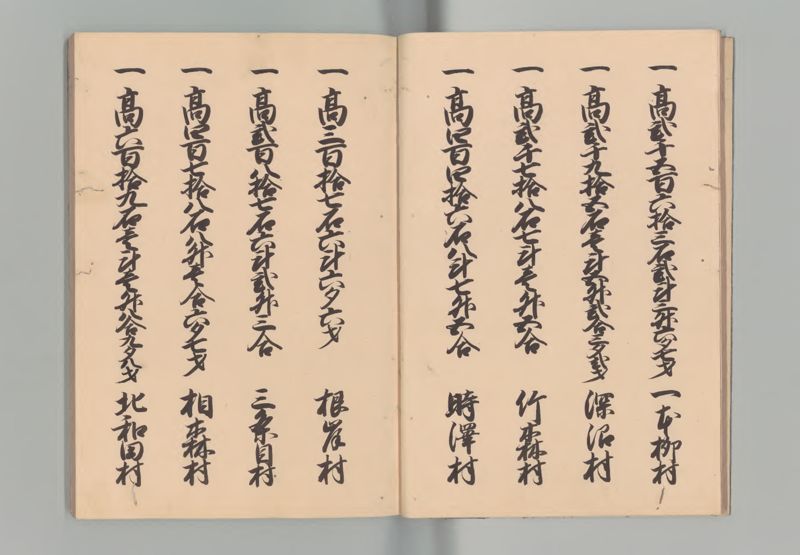 一 高弐千五百六拾三石弐斗三升四夕七才 一本柳村
一 高弐千九拾五石壱斗五升弐合三夕弐才 深沼村
一 高弐千七拾八石七斗壱升五合 竹森村
一 高四百四拾六石八斗七升五合 時澤村
一 高三百拾七石六斗六夕六才 根岸村
一 高弐百八拾七石六斗弐升三合 三条目村
一 高四百七拾八石八升壱合六夕七才 相森村
一 高六百拾九石壱斗壱升八合九夕九才 北和田村